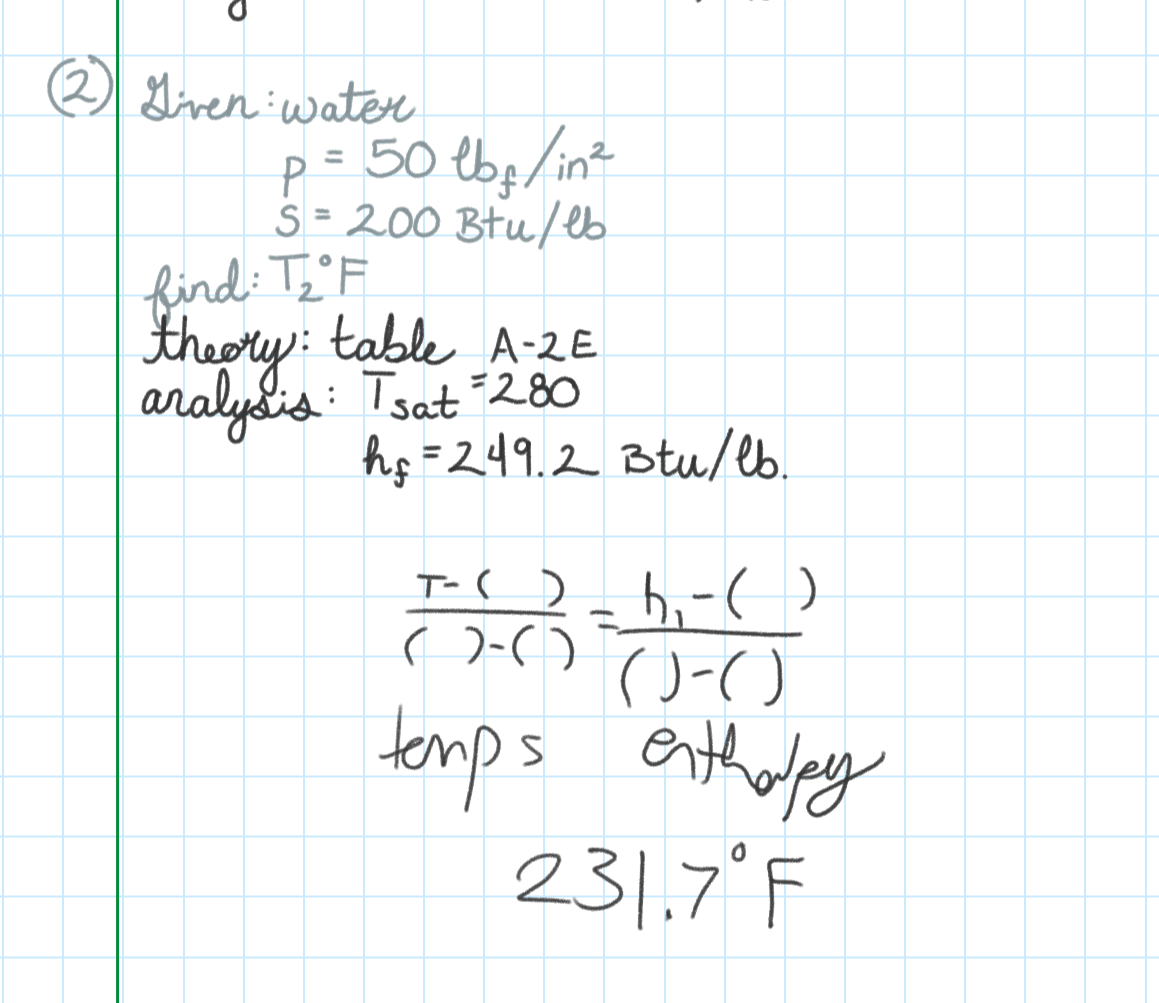 ② Given: water
p = 50 lbf/in²
s = 200 Btu/lb
find: T₂°F
theory: table A-2E
analysis: Tsat = 280
hf = 249.2 Btu/lb.
T-( ) / ( )-( ) = h₁-( ) / ( )-( )
temps enthalpy
231.7°F